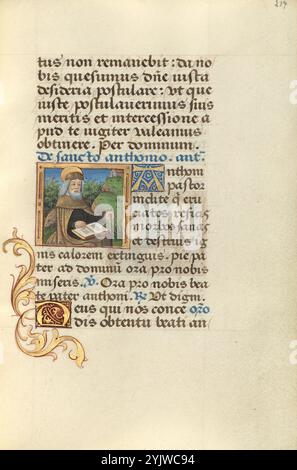 219
tus non remanebit : da no
bis quesumus dñe iusta
desideria postulare : ut que
iuste postulauerimus suis
meritis et intercessione a
pud te iugiter valeamus
obtinere. Per dominum.
De sancto anthonio. ant.
Anthoni
pastor
inclite q cru
ciatos reficis
morbos sanas
et destruis ig
nis calorem extinguis. pie pa
ter ad dominũ ora pro nobis
miseris. V. Ora pro nobis bea
te pater anthoni. R. Ut digni.
Deus qui nos conce oro
dis obtentu beati an
alamy
Image ID: 2YJWC94
www.alamy.com